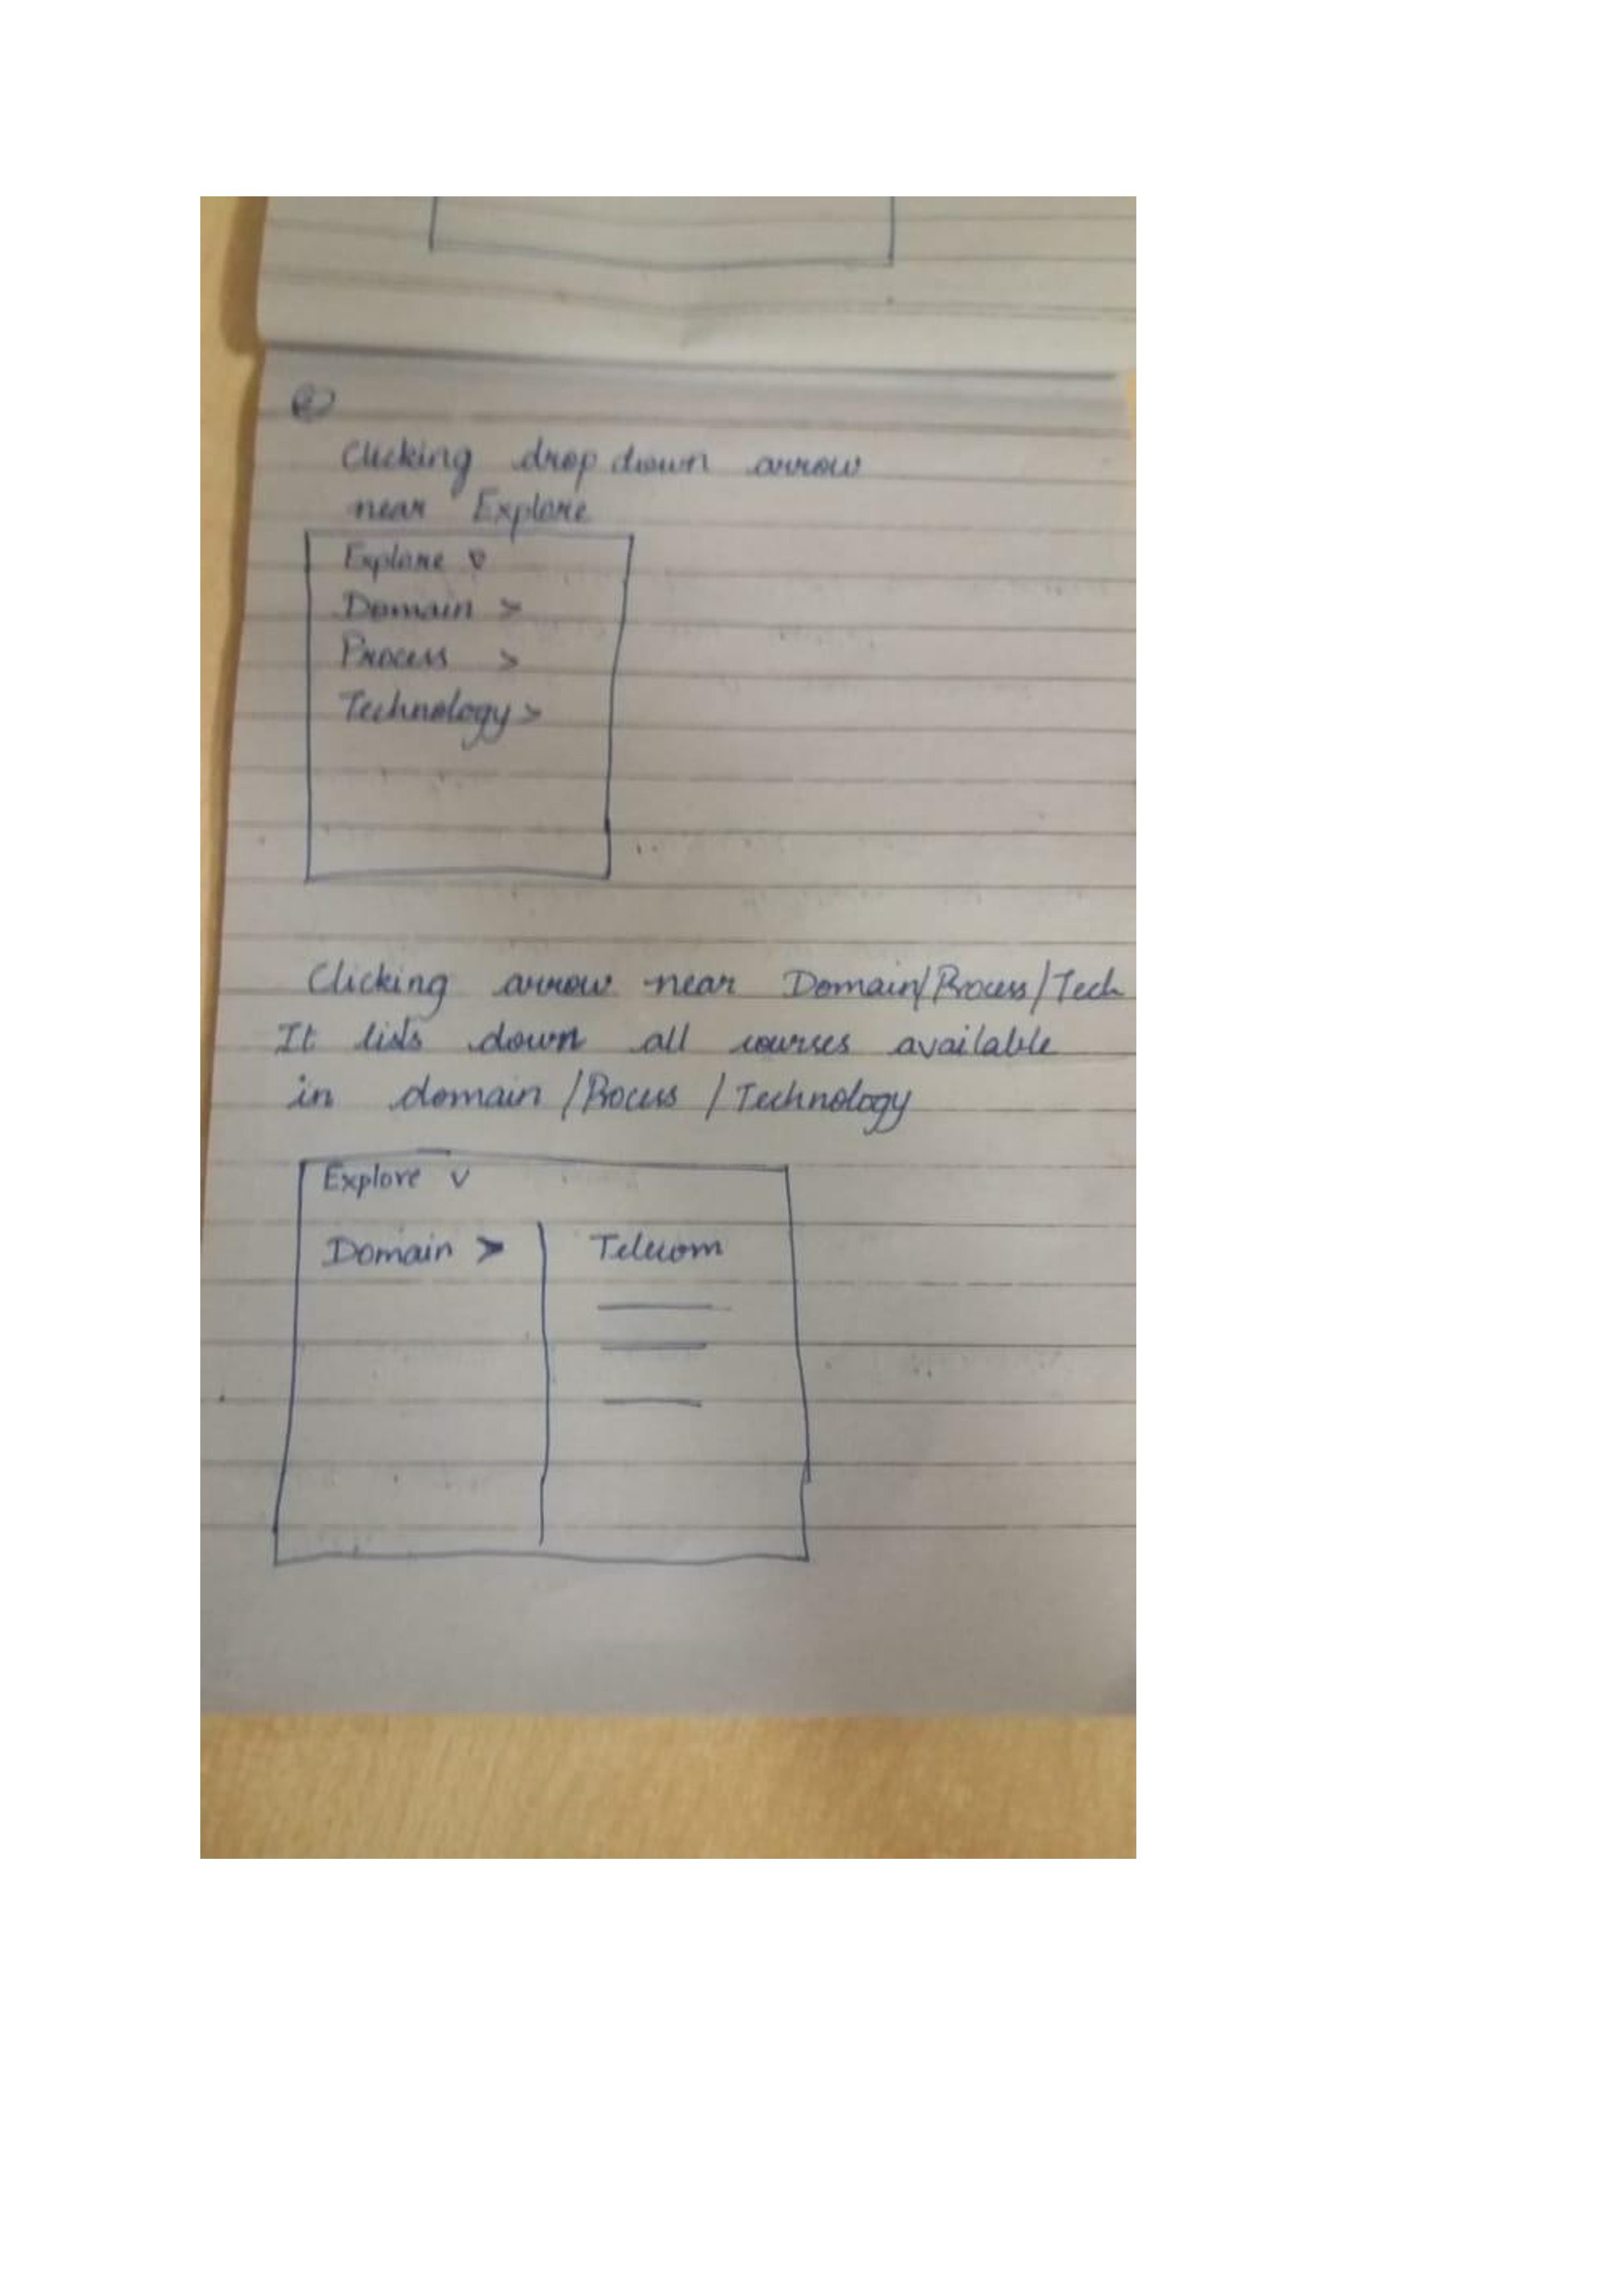 Clicking drop down arrow
near Explore
Explore v
Domain >
Process >
Technology >
Clicking arrow near Domain/Process/Tech
It lists down all courses available
in domain / Process / Technology
Explore v
Domain > Telecom